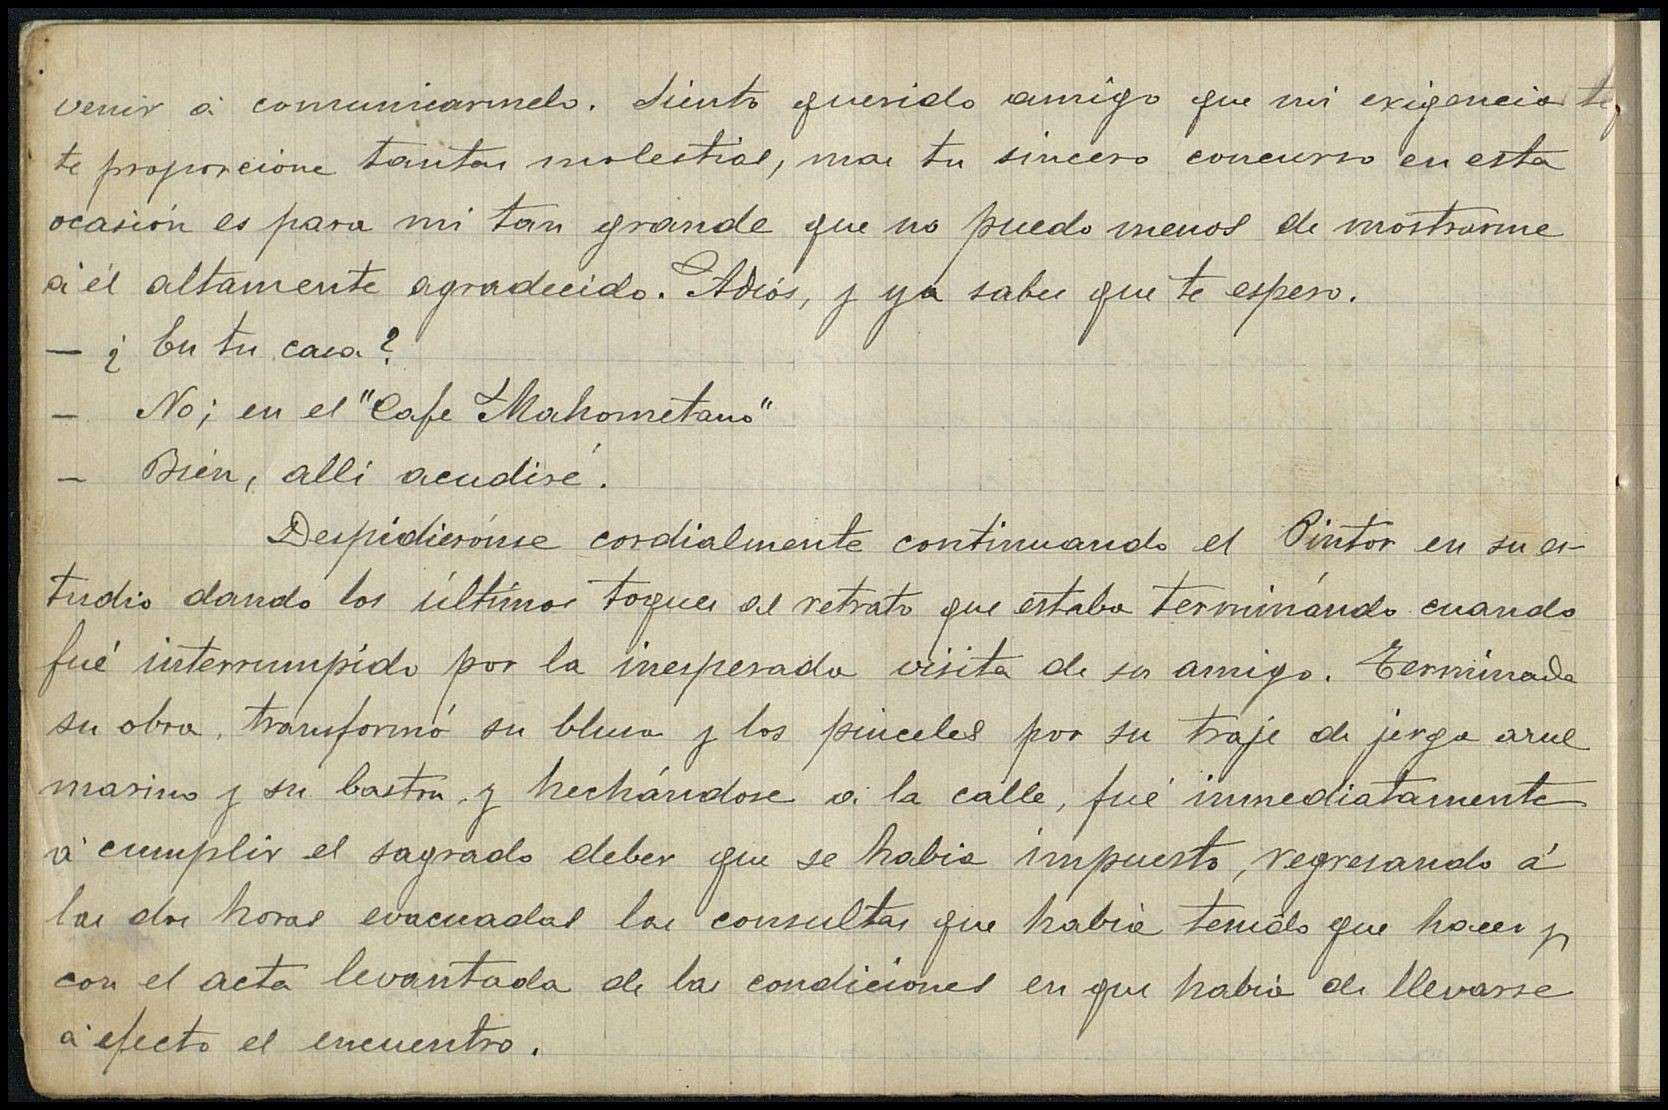 venir á comunicarmelo. Siento querido amigo que mi exigencia te
te proporcione tantas molestias, mas tu sincero concurso en esta
ocasión es para mi tan grande que no puedo menos de mostrarme
á él altamente agradecido. Adiós, y ya sabes que te espero.
— ¿En tu casa?
— No; en el "Cafe Mahometano"
— Bién, alli acudiré.
Despidierónse cordialmente continuando el Pintor en su es-
tudio dando los últimos toques al retrato que estaba terminándo cuando
fué interrumpido por la inesperada visita de su amigo. Terminada
su obra, transformó su blusa y los pinceles por su traje de jerga azul
marino y su baston, y hechándose á la calle, fué inmediatamente
á cumplir el sagrado deber que se habia impuesto, regresando á
las dos horas evacuadas las consultas que habia tenido que hacer y
con el acta levantada de las condiciones en que habia de llevarse
á efecto el encuentro.